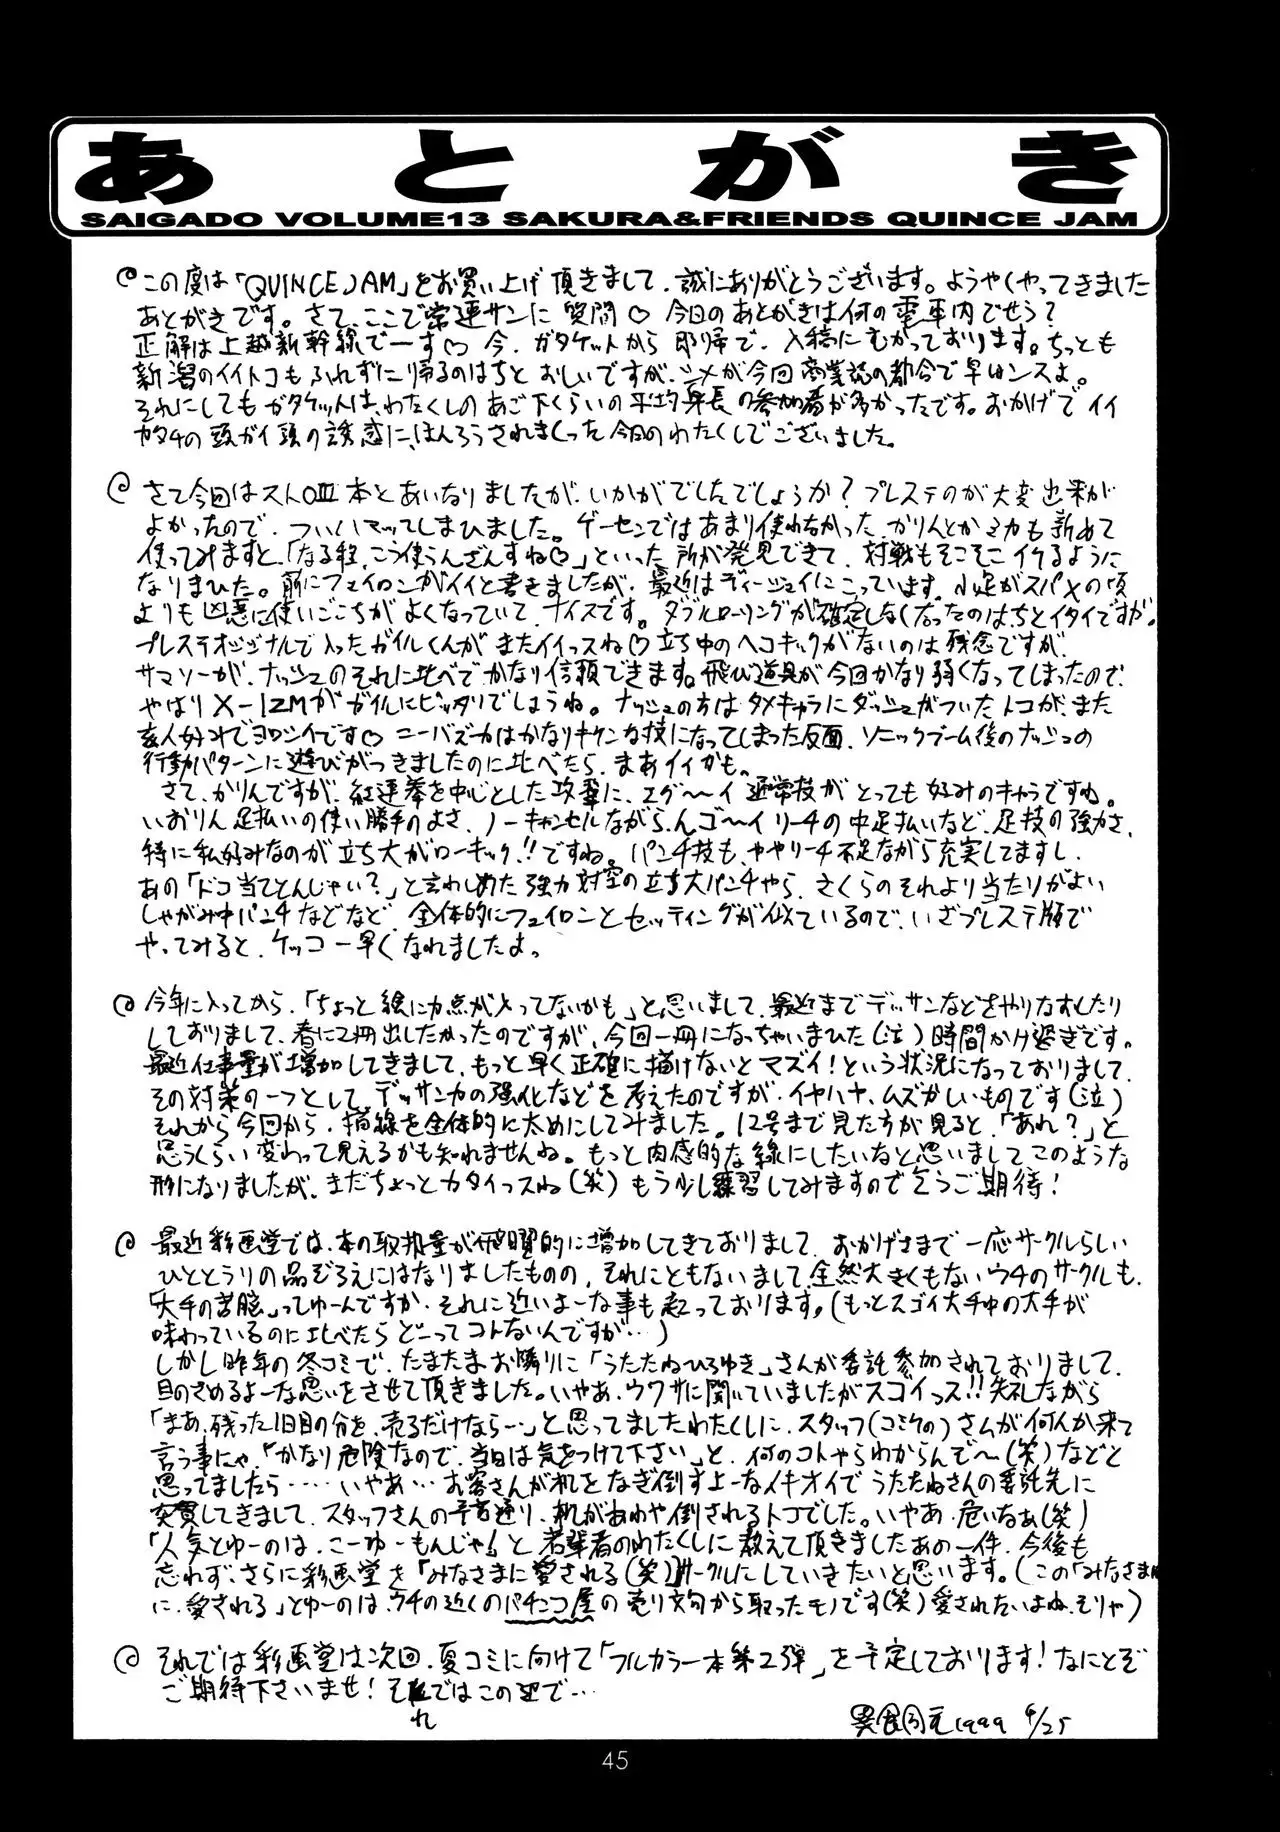 あとがき
SAIGADO VOLUME13 SAKURA&FRIENDS QUINCE JAM
この度は「QUINCE JAM」をお買い上げ頂きまして、誠にありがとうございます。ようやくやってきました
あとがきです。さて、ここで常連サンに質問♡ 今日のあとがきは何の電車内でせう?
正解は上越新幹線でーす♡ 今、ガタケットから即帰で、入稿にむかっております。ちっとも
新潟のイイトコもふれずに帰るのはちとおしいですが、シメが今回商業誌の都合で早いンスよ。
それにしてもガタケットは、わたくしのあご下くらいの平均身長の参加者が多かったです。おかげでイイ
カタチの頭ガイ頭の誘惑に、ほんろうされまくった今日のわたくしでございました。
さて今回はストZEROⅢ本とあいなりましたが、いかがでしたでしょうか? プレステのが大変出来が
よかったので、ついハマってしまひました。ゲーセンではあまり使わなかった、かりんとかミカも新めて
使ってみますと、「なる程、こう使うんざんすね♡」といった所が発見できて、対戦もそこそこイケるように
なりまひた。前にフェイロンがイイと書きましたが、最近はディージェイにこっています。小足がスパXの頃
よりも凶悪に使いごこちがよくなっていて、ナイスです。ダブルローリングが確定しなくなったのはちとイタイですが。
プレステオリジナルで入ったガイルくんが、またイイっスね♡ 立ち中のヘコキックがないのは残念ですが、
サマソーが、ナッシュのそれに比べてかなり信頼できます。飛び道具が今回かなり弱くなってしまったので、
やはりX-IZMがガイルにピッタリでしょうね。ナッシュの方はタメキャラにダッシュがついたトコが、また
玄人好みでヨロシイです♡ ニーバズーカはかなりキケンな技になってしまった反面、ソニックブーム後のナッシュの
行動パターンに遊びがつきましたのに比べたら、まあイイかも。
さて、かりんですが、紅蓮拳を中心とした攻撃に、エグ〜イ通常技がとっても好みのキャラですね。
いおりん足払いの使い勝手のよさ、ノーキャンセルながら、んゴ〜イリーチの中足払いなど、足技の強力さ、
特に私好みなのが立ち大がローキック!!ですね。パンチ技も、ややリーチ不足ながら充実してますし、
あの「ドコ当てとんじゃい?」と言わしめた強力対空の立ち大パンチやら、さくらのそれより当たりがよい
しゃがみ中パンチなどなど、全体的にフェイロンとセッティングが似ているので、いざプレステ版で
やってみると、ケッコー早くなれましたよ。
今年に入ってから、「ちょっと絵に力点が入ってないかも」と思いまして、最近までデッサンなどをやりなおしたり
しておりまして、春に2冊出したかったのですが、今回一冊になっちゃいまひた(泣)時間かけ過ぎです。
最近仕事量が増加してきまして、もっと早く正確に描けないとマズイ!という状況になっておりまして、
その対策の一つとして、デッサン力の強化などを考えたのですが、イヤハヤ、ムズかしいものです(泣)
それから今回から、描線を全体的に太めにしてみました。12号まで見た方が見ると、「あれ?」と
思うくらい変わって見えるかも知れませんね。もっと肉感的な線にしたいなと思いましてこのような
形になりましたが、まだちょっとカタイっスね(笑)もう少し練習してみますので乞うご期待!
最近彩画堂では、本の取扱量が飛躍的に増加してきておりまして、おかげさまで一応サークルらしい
ひととうりの品ぞろえにはなりましたものの、それにともないまして、全然大きくもないウチのサークルも、
「大手の苦脳」ってゆーんですか、それに近いよーな事も起っております。(もっとスゴイ大手中の大手が
味わっているのに比べたらどーってコトないんですが…)
しかし昨年の冬コミで、たまたまお隣りに「うたたねひろゆき」さんが委託参加されておりまして、
目のさめるよーな思いをさせて頂きました。いやあ、ウワサに聞いていましたがスゴイっス!!失礼ながら
「まあ、残った1日目の分を、売るだけならー」と思ってましたわたくしに、スタッフ(コミケの)さんが何人か来て
言う事にゃ、「かなり危険なので、当日は気をつけて下さい」と、何のコトやらわからんで〜(笑)などと
思ってましたら……いやあ…お客さんが机をなぎ倒すよーなイキオイでうたたねさんの委託先に
突貫してきまして、スタッフさんの予言通り、机があわや倒されるトコでした。いやあ、危いなぁ(笑)
「人気とゆーのは、こーゆーもんじゃ!」と若輩者のわたくしに教えて頂きましたあの一件、今後も
忘れず、さらに彩画堂を「みなさまに愛される(笑)」サークルにしていきたいと思います。(この「みなさま
に、愛される」とゆーのは、ウチの近くのパチンコ屋の売り文句から取ったモノです(笑)愛されたいよね、そりゃ)
それでは彩画堂は次回、夏コミに向けて「フルカラー本第2弾」を予定しております!なにとぞ
ご期待下さいませ!それではこの辺で…
れ
異食同元 1999 4/25
45